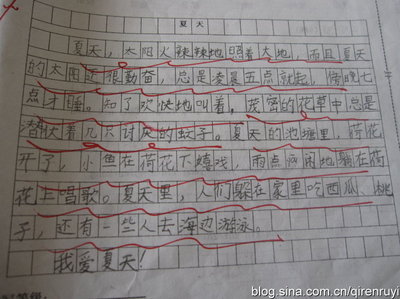 夏天
夏天，太阳火辣辣地照着大地，而且夏天
的太阳还很勤奋，总是凌晨五点就起，傍晚七
点才睡。知了欢快地叫着，茂密的花草中总是
潜伏着几只讨厌的蚊子。夏天的池塘里，荷花
开了，小鱼在荷花下嬉戏，雨点顽固地躺在荷
花上唱歌。夏天里，人们躲在家里吃西瓜、桃
子，还有一些人去海边游泳。
我爱夏天！
blog.sina.com.cn/qirenruyi